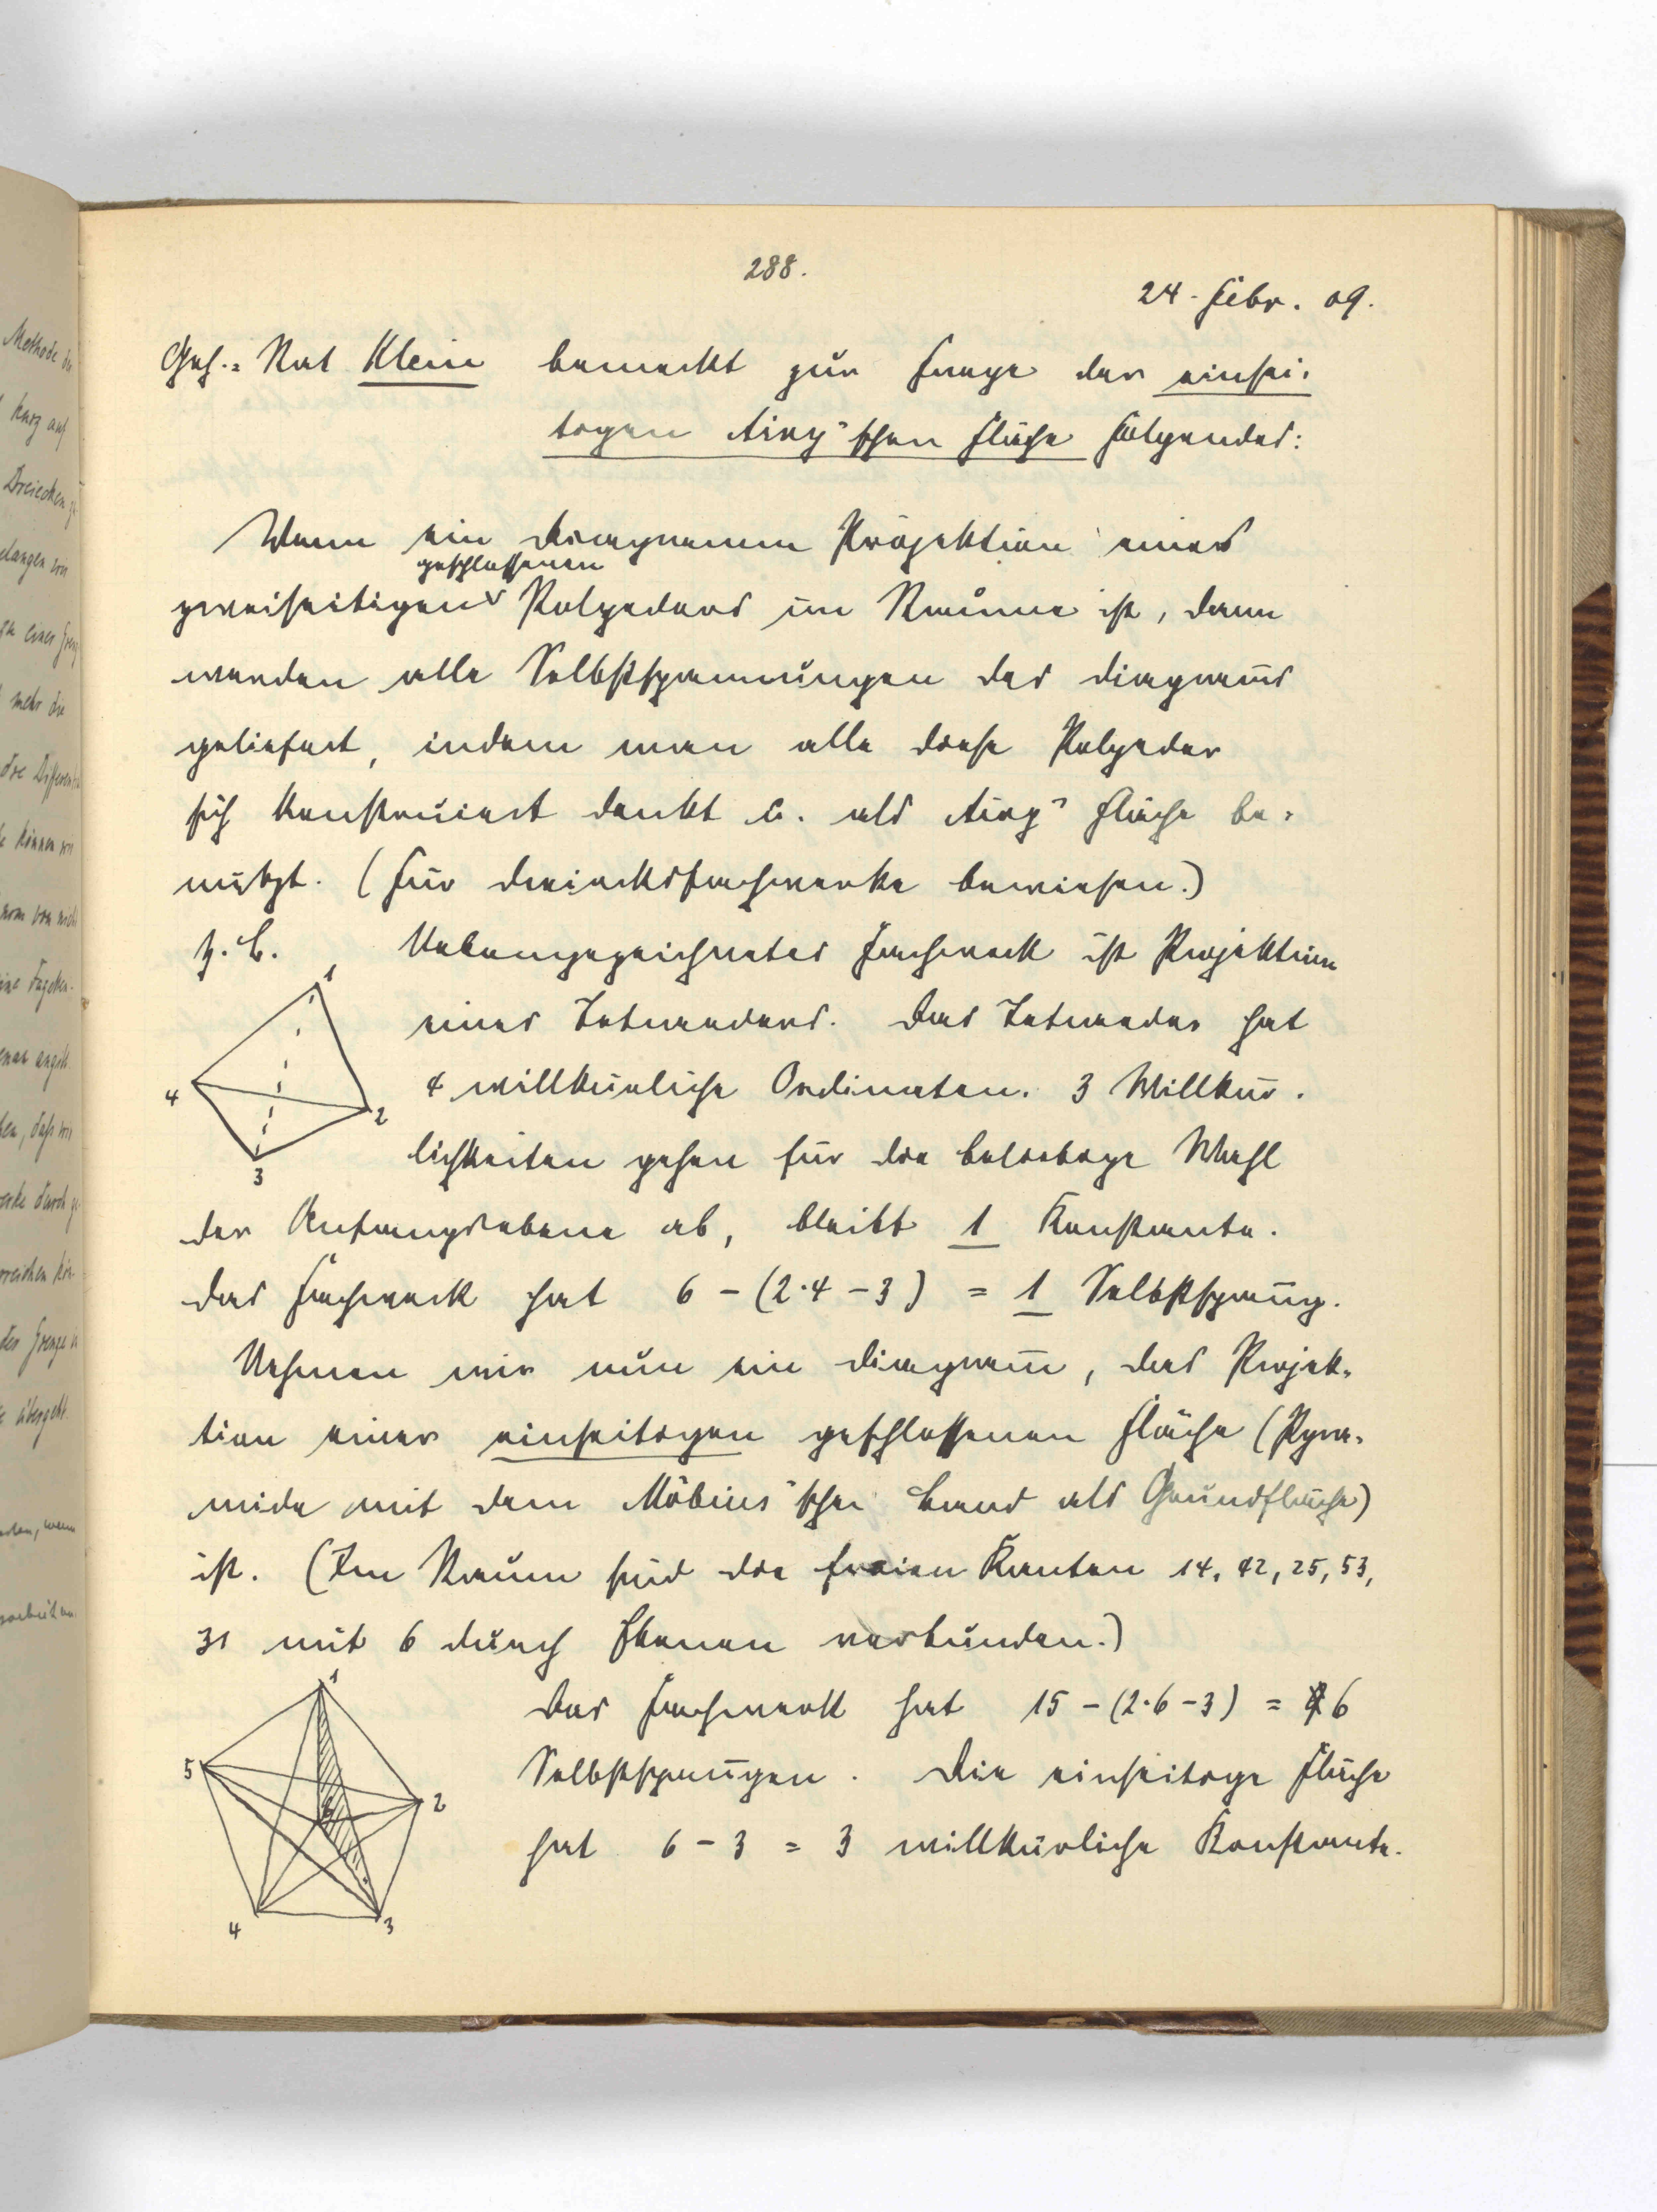 288.
24. Febr. 09.
Geh.= Rat Klein bemerkt zur Frage der einsei-
tigen Airy'schen Fläche Folgendes:
Wenn ein Diagramm Projektion eines
geschlossenen
zweiseitigen Polyeders im Raume ist, dann
werden alle Selbstspannungen des Diagram̄s
geliefert, indem man alle diese Polyeder
sich konstruiert denkt u. als Airy' Fläche be-
nützt. (Für Dreiecksfachwerke bewiesen.)
z. B. Nebengezeichnetes Fachwerk ist Projektion
eines Tetraeders. Das Tetraeder hat
4 willkürliche Ordinaten. 3 Willkür-
lichkeiten gehen für die beliebige Wahl
der Anfangsebene ab, bleibt 1 Konstante.
Das Fachwerk hat 6 - (2·4 - 3) = 1 Selbstspan̄ung.
Nehmen wir nun ein Diagram̄, das Projek-
tion einer einseitigen geschlossenen Fläche (Pyra-
mide mit dem Möbius'schen Band als Grundfläche)
ist. (Im Raum sind die freien Kanten 14, 42, 25, 53,
31 mit 6 durch Ebenen verbunden.)
Das Fachwerk hat 15 - (2·6 - 3) = 6
Selbstspan̄ungen. Die einseitige Fläche
hat 6 - 3 = 3 willkürliche Konstante.
1
4
2
3
1
5
2
6
4
3